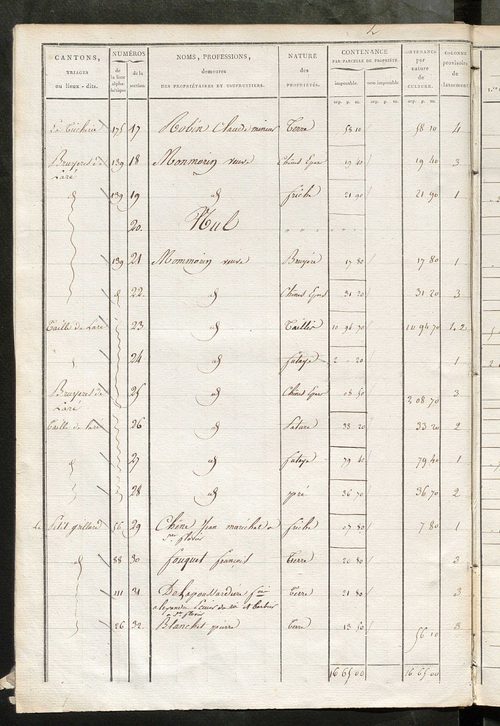 2
CANTONS, TRIAGES ou lieux-dits.
NUMÉROS
de la liste alphabétique
de la section
NOMS, PROFESSIONS, demeures DES PROPRIÉTAIRES ET USUFRUITIERS.
NATURE des PROPRIÉTÉS.
CONTENANCE PAR PARCELLE DE PROPRIÉTÉ.
imposable.
non imposable.
CONTENANCE par nature de CULTURE.
COLONNE provisoire de classement
arp. p. m. arp. p. m. arp. p. m.
175 17 Robin Claude Terre 58 10 58 10 4
Bruyeres de Laré 139 18 Monmorin veuve Chénes Epars 19 40 19 40 3
id 139 19 id friche 21 90 21 90 1
20. Nul
139 21 Monmorin veuve Bruyere 17 80 17 80 1
id 22 id Chénes Epars 31 20 31 20 3
Taille de Laré 23 id Taillis 10 94 70 10 94 70 1.2
id 24 id futaye 2 20 1
Bruyeres de Laré 25 id Chénes Epars 08 50 2,08 70 3
Taille de Laré 26 id Pature 33 20 33 20 2
id 27 id futaye 79 40 79 40 1
id 28 id pré 36 70 36,70 2
Le Petit 56 29 Chéne Jean maréchal à friche 07 80 7 80 1
88 30 fouquet francois Terre 20 80 3
id 111 31 Terre 21 80 3
26 32 Blanchet pierre Terre 13 50 56 10 3
16 65 00 16 65 00